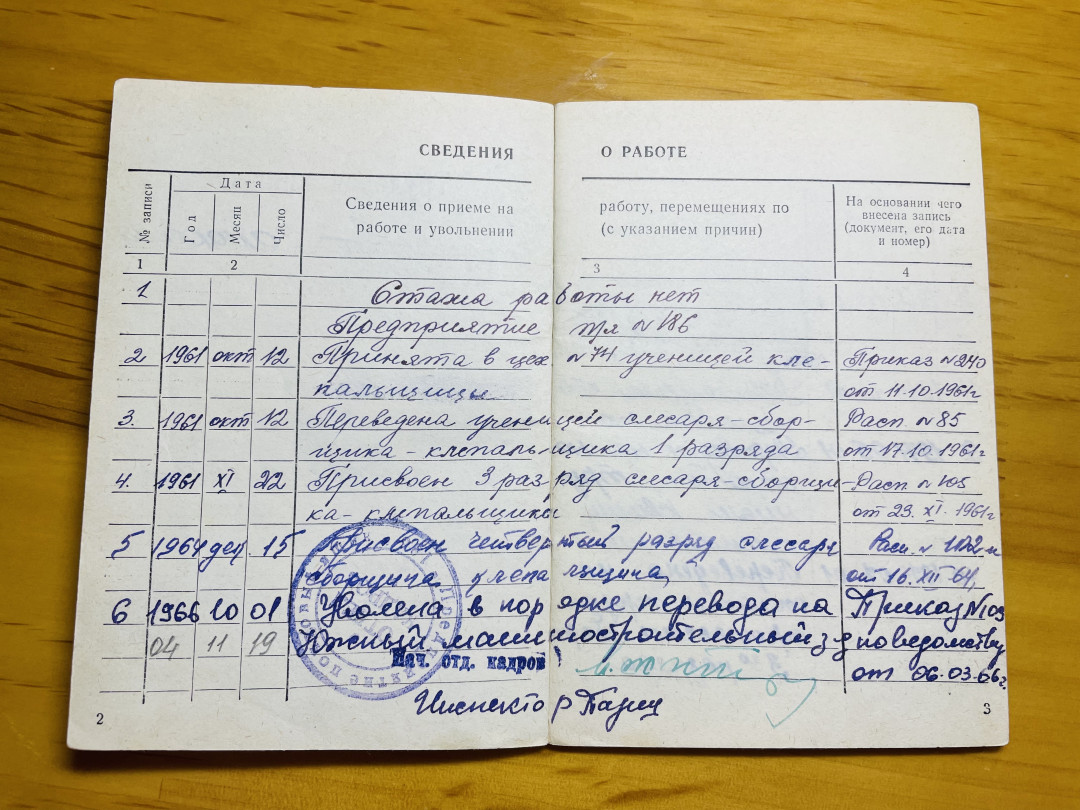 СВЕДЕНИЯ О РАБОТЕ
№ записи
Дата
Год
Месяц
Число
Сведения о приеме на работу, перемещениях по
работе и увольнении (с указанием причин)
На основании чего
внесена запись
(документ, его дата
и номер)
1 2 3 4
1 Стажа работы нет
Предприятие п/я №186
2 1961 окт 12 Принята в цех №74 ученицей кле- Приказ №240
пальщицы от 11.10.1961г
3. 1961 окт 12 Переведена ученицей слесаря-сбор- Расп. №85
щика-клепальщика 1 разряда от 17.10.1961г
4. 1961 XI 22 Присвоен 3 разряд слесаря-сборщи- Расп. №105
ка-клепальщика от 23.XI.1961г
5 1964 дек. 15 Присвоен четвертый разряд слесаря Расп. №
сборщика клепальщика от 16.XII-64г
6 1966 10 01 Уволена в порядке перевода на Приказ №109
04 11 19 Южный машиностроительный з-д по ведомству
Нач. отд. кадров от 06.03.66г.
Инспектор
2 3